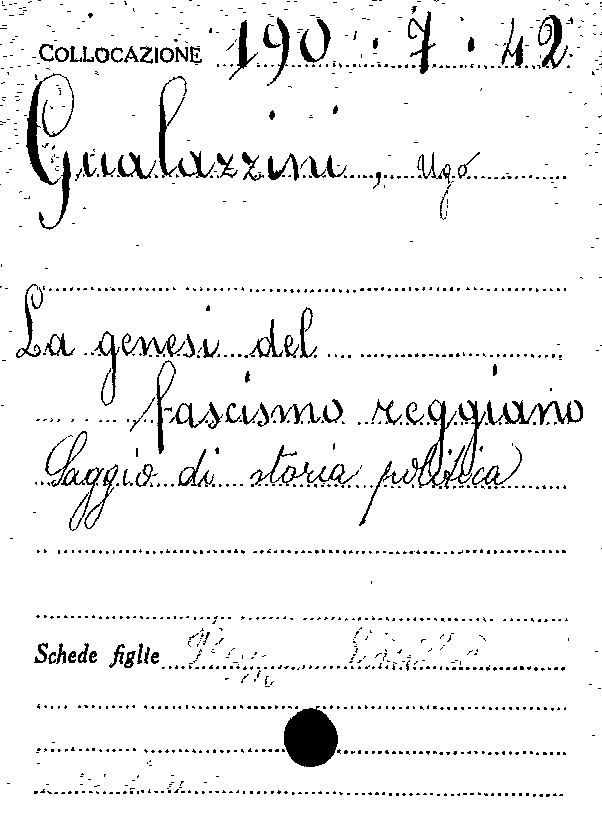 COLLOCAZIONE 190 . 7 . 42
Gualazzini, Ugo
La genesi del
fascismo reggiano
Saggio di storia politica
Schede figlie